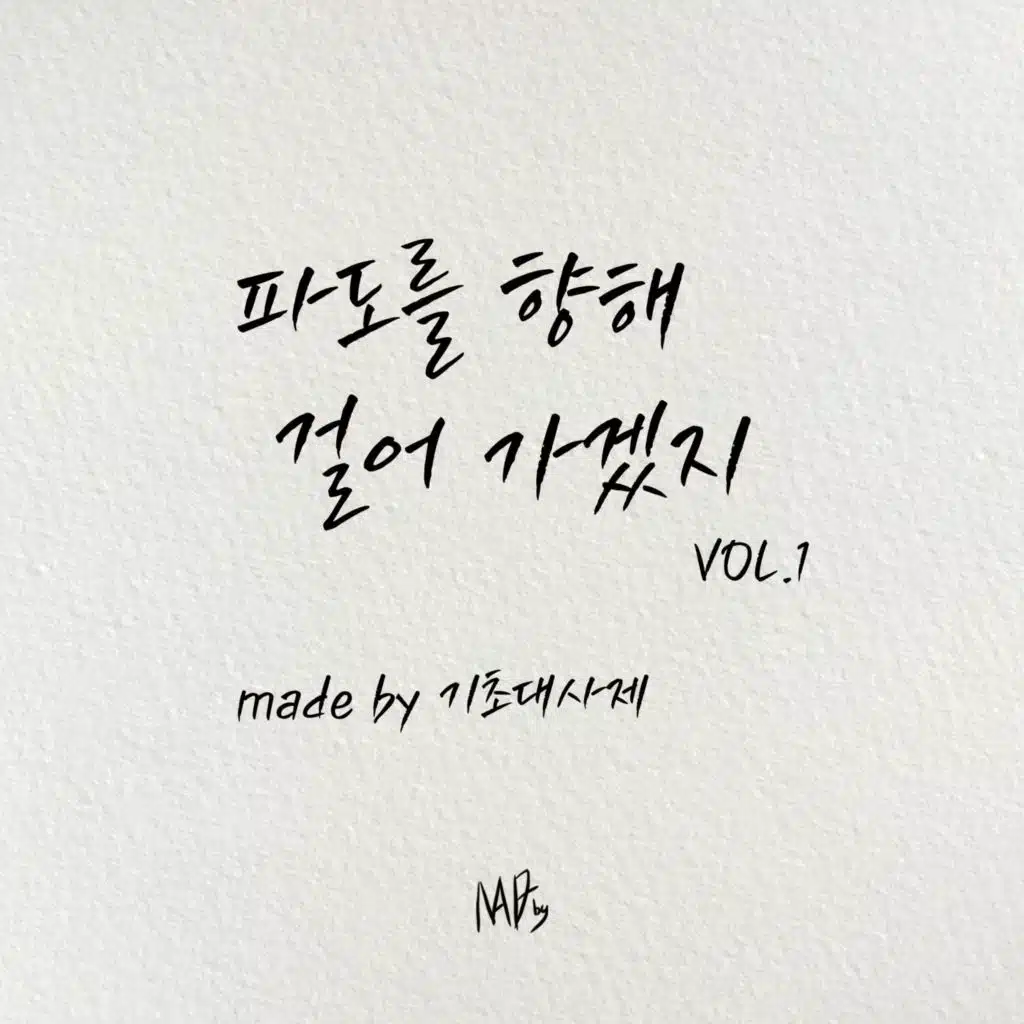 파도를 향해
걸어 가겠지
VOL.1
made by 기초대사제
by